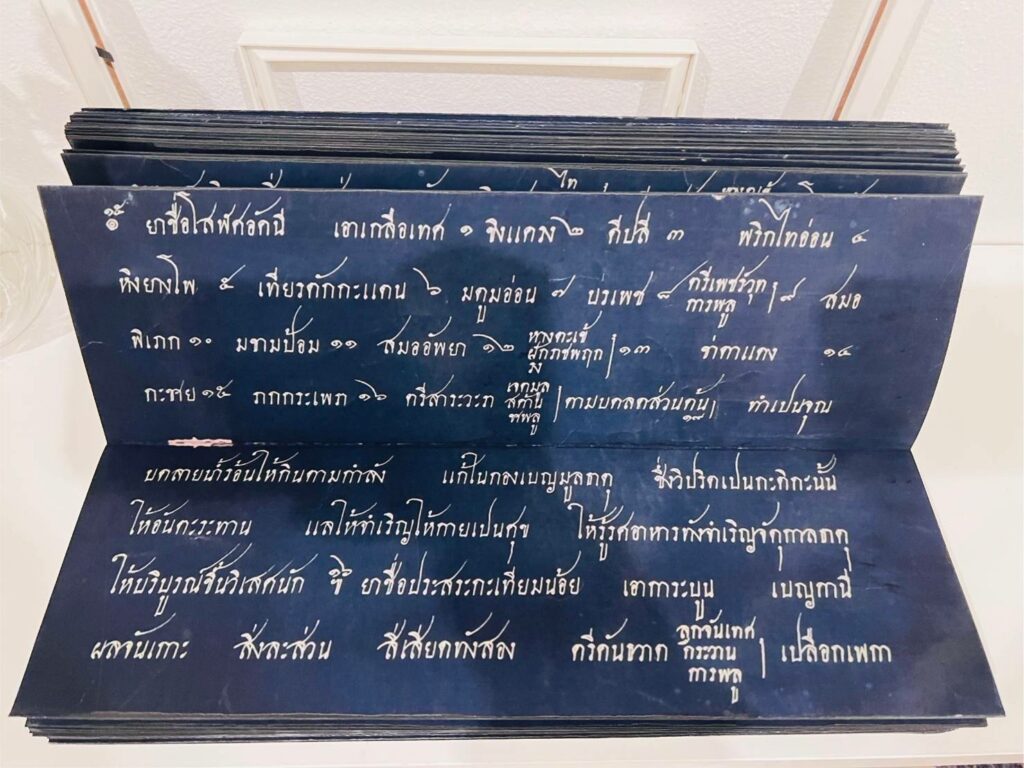 ยาชื่อโสฬศอัคนี เอาเกลือเทศ ๑ ขิงแดง ๒ ดีปลี ๓ พริกไทอ่อน ๔
หิงยางโพ ๕ เทียรตักกะแตน ๖ มตูมอ่อน ๗ บรเพช ๘ ตรีเพชรัวุท การพลู ๙ สมอ
พิเภก ๑๐ มขามป้อม ๑๑ สมออัพยา ๑๒ หางตะเข้ ฝักราชพฤก ๑๓ ข่าตาแดง ๑๔
กะชาย ๑๕ ภกกระเพภ ๑๖ ตรีสาระวะภ เจตมูล สค้าน ชพลู ตามบทลดส่วนต้น ทำเปนจุณ
บดลายน้ำร้อนให้กินตามกำลัง แก้ในกองเบญมูลธาตุ ซึ่งวิปริตเปนกะติกะนั้น
ให้อันตะระทาน แลให้จำเริญให้กายเปนศุข ให้รู้รศอาหารทังจำเริญจัตุกาลธาตุ
ให้บริบูรณ์ขึ้นวิเสศนัก ยาชื่อประสระกะเทียมน้อย เอาการะบูน เบญกานี
ผลจันเกาะ สิ่งละส่วน สีเสียดทังสอง ตรีคันธวาต ลูกจันเทศ กระวาน การพลู เปลือกเพกา